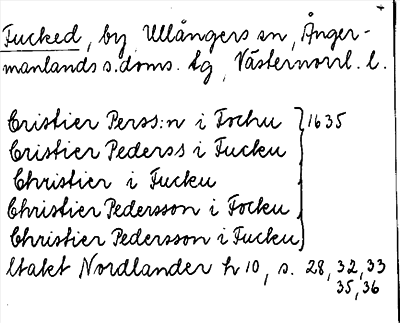 Fucked, by, Ullångers sn, Ånger-
manlands s. doms. tg, Västernorrl. l.
Cristier Perss:n i Focku } 1635
Cristier Pederss i Fucku
Christier i Fucku
Christier Pedersson i Focku
Christier Pedersson i Fucku
Utakt Nordlander h 10, s. 28, 32, 33
35, 36